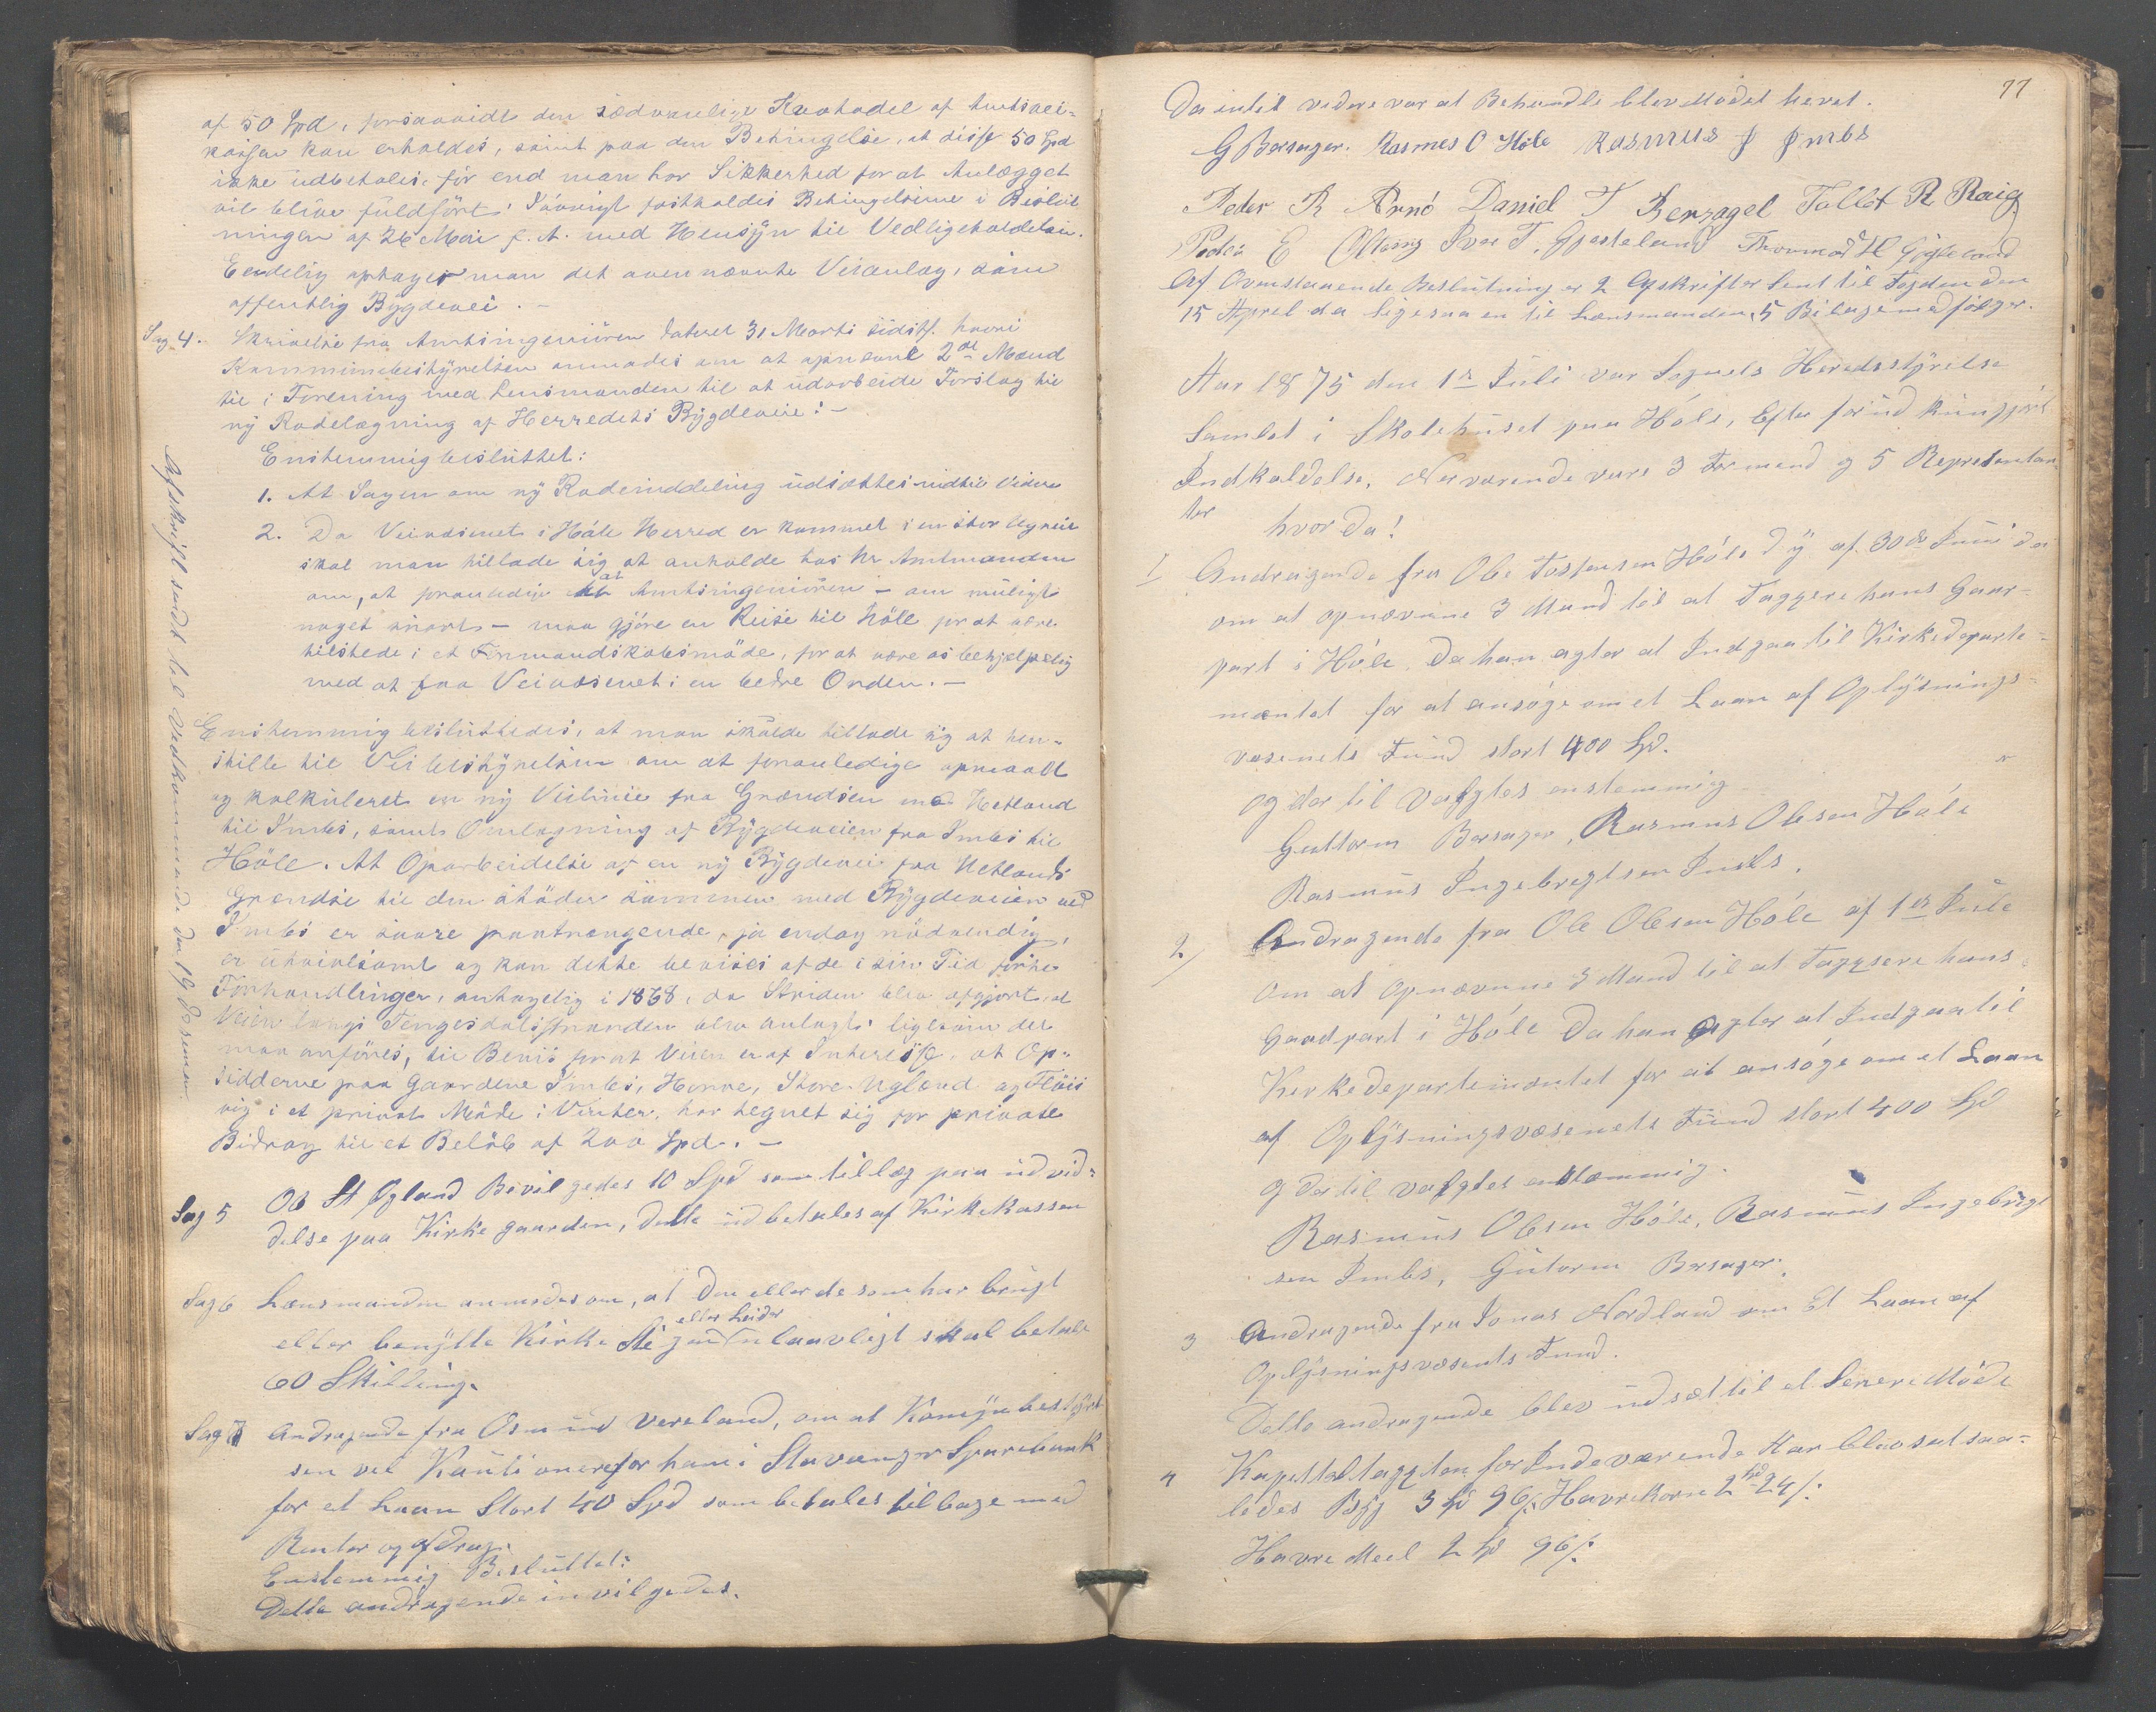 af 50 Spd, forsaavidt den sædvanlige Kvotadel af Amtsvei-
kassen kan erholdes, samt paa den Betingelse, at disse 50 Spd
ikke udbetales, før end man har Sikkerhed for at Anlægget
vil blive fuldført. Iøvrigt fastholdes Betingelserne i Beslut
ningen af 26 Mai f. A. med Hensyn til Vedligeholdelsen.
Endelig optages man det ovennævnte Veianlæg, som
offentlig Bygdevei. -
Sag 4. Skrivelse fra Amtsingeniøren dateret 31 Marts sidstl. hvori
Kommunebestyrelsen anmodes om at opnevne 2de Mænd
til i Forening med Lensmanden til at udarbeide Forslag til
ny Rodelægning af Herredets Bygdeveie: -
Enstemmig besluttet:
1. At Sagen om ny Rodeinddeling udsættes indtil videre
2. Da Veivæsenet i Høle Herred er kommet i en stor Ugreie
skal man tillade sig at anholde hos Hr Amtmanden
om, at foranledige at Amtsingeniøren - om muligt
noget snart - maa gjøre en Reise til Höle for at være
tilstede i et Formandskabsmöde, for at være os behjelpelig
med at faa Veivæsenet i en bedre Orden. -
Enstemmig besluttedes, at man skulde tillade sig at hen-
stille til Veibestyrelsen om at foranledige opmaalt
og kalkuleret en ny Veilinie fra Grændsen med Hetland
til Imbs, samt Omlægning af Bygdeveien fra Imbs til
Höle. At Oparbeidelse af en ny Bygdevei fra Hetlands
Grendse til den støder sammen med Bygdeveien ved
Imbs er saare paatrængende, ja endog nödvendig,
er utvivlsomt og kan dette bevises af de i sin Tid førte
Forhandlinger, antagelig i 1868, da Striden blev afgjort, at
Veien langs Tengesdalsstranden blev anlagt; ligesom det
maa anføres, til Bevis for at Veien er af Interesse, at Op-
sidderne paa Gaardene Imbs, Honne, Store Ugland og Fløis
vig i et privat Møde i Vinter, har tegnet sig for private
Bidrag til et Beløb af 200 Spd. -
Sag 5 Ob St Ogland Bevilgedes 10 Spd som tillæg paa udvid-
delse paa Kirkegaarden, dette udbetales af Kirkekassen
Sag 6 Lensmanden anmodes om, at den eller de som har brugt
eller benytte Kirke Stigen eller Leider ulaavligt skal betale
60 Skilling.
Sag 7 Andragende fra Osmund Vereland, om at Komunbestyrel
sen vil Kautionere for ham i Stavanger Sparebank
for et Laan Stort 40 Spd som betales tilbage med
Renter og afdrag.
Enstemmig Besluttet:
Dette andragende invilgedes.
Afskrift sendt til Vedkommende den 19 Desember
77
Da intet videre var at Behandle blev Mødet hevet.
G Bersager. Rasmes O Høle Rasmus J Jmbs
Peder R Arnö Daniel T Bersagel Tollef R Raig
Peder E Oltesvig Ivar T. Gjesteland Thormod H Gjesteland
Af Ovenstaaende Beslutning er 2 Afskrifter Sent til Fogden den
15 Aprel da ligesaa en til Lænsmanden, 5 Bilage medfölger.
Aar 1875 den 1te Juli var Sognets Heredsstyrelse
Samlet i Skolehuset paa Höle, Efter forud kungjört
Indkaldelse, Nerværende vare 3 Formænd og 5 Representan
ter hvor da!
1 Andragende fra Ole Tostensen Höle d y af 30de Juni da
om at opnævnne 3 Mænd til at Taxere hans Gaar-
part i Höle, Da han agter at Indgaa til Kirkedeparte-
mentet for at ansøge om et Laan af Oplysnings-
væsenets Fund stort 400 Spd.
og der til Valgtes enstemmig
Guttorm Bersager, Rasmus Olesen Höle
Rasmus Ingebregtsen Imbs.
2 Andragende fra Ole Olesen Höle af 1ste Jule
Om at Opnævnne 3 Mænd til at Taxsere hans
Gaardpart i Höle Da han Agter at Indgaa til
Kerkedepartemæntet for at ansöge om et Laan
af Oplysningsvæsenets Fund stort 400 Spd
og der til valgtes enstemmig.
Rasmus Olesen Höle, Rasmus Ingebrigt
sen Imbs, Gutorm Bersager.
3 Andragende fra Jonas Nordland om Et Laan af
Oplysningsvæsents Fund.
Dette andragende blev udsat til et Senere Møde
4 Kapitelstaxten for Indeværende Aar blev sat saa-
ledes Byg 3 Spd 96 s. Havrekorn 2 Spd 24 s.
Havre Meel 2 Spd 96 s.